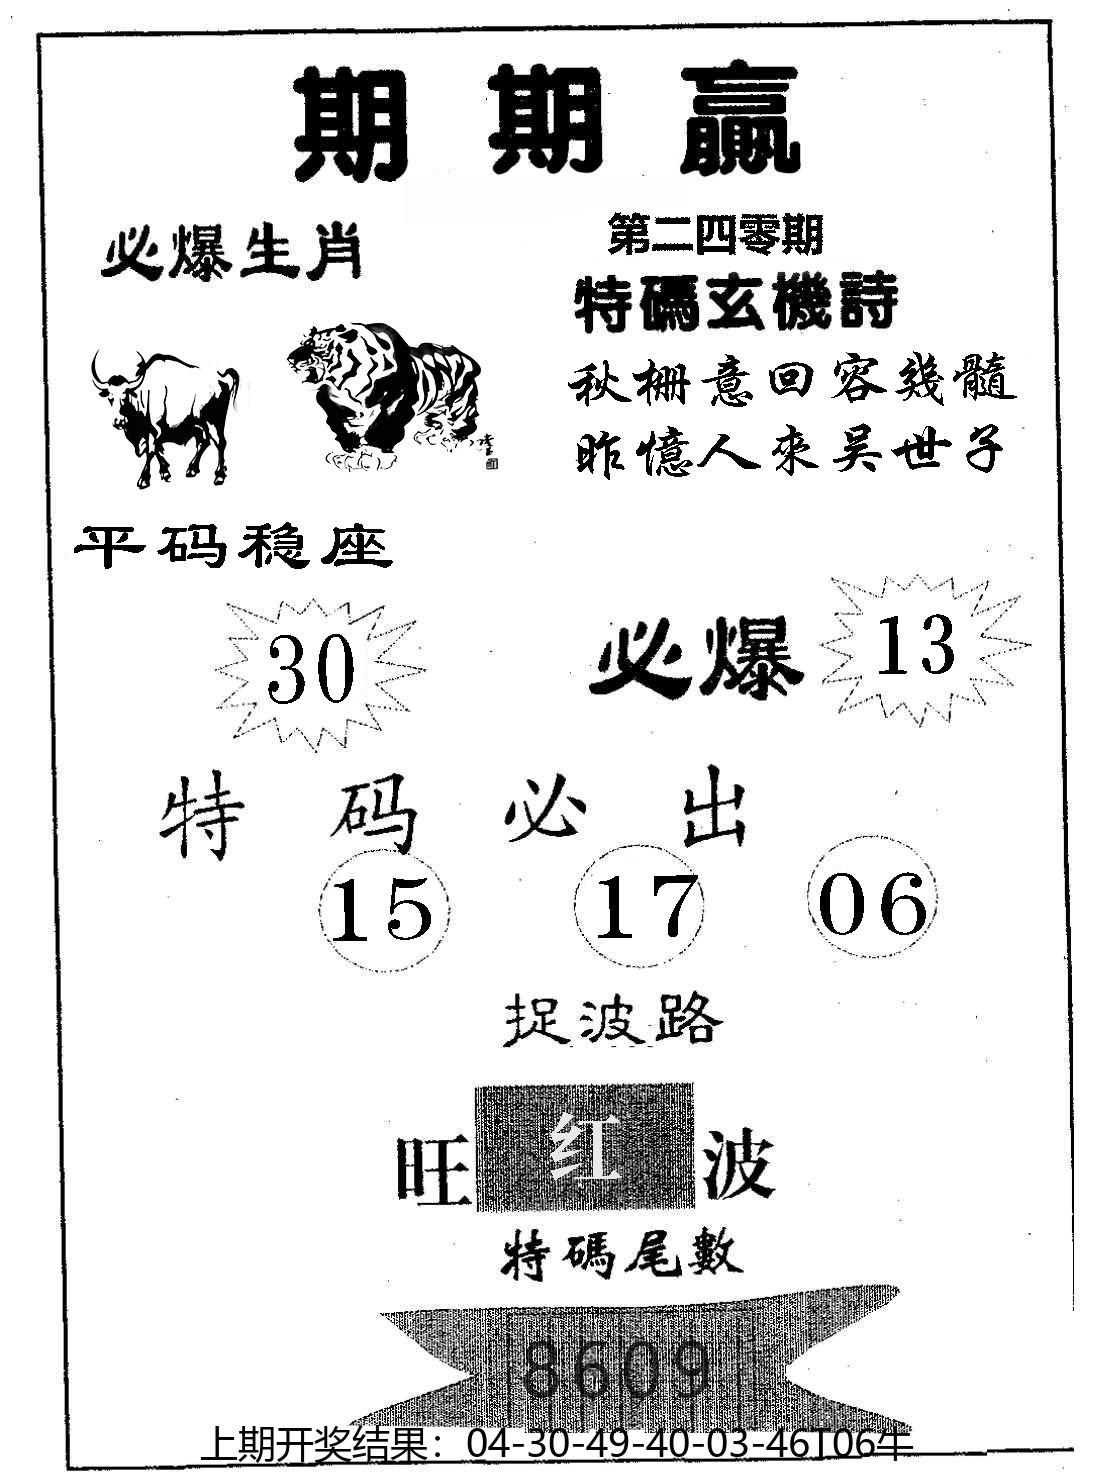 期期贏
必爆生肖
第二四零期
特碼玄機詩
秋柵意回容幾髓
昨憶人來吴世子
平码稳座
30
必爆
13
特码必出
15 17 06
捉波路
旺红波
特碼尾數
8609
上期开奖结果：04-30-49-40-03-46T06牛